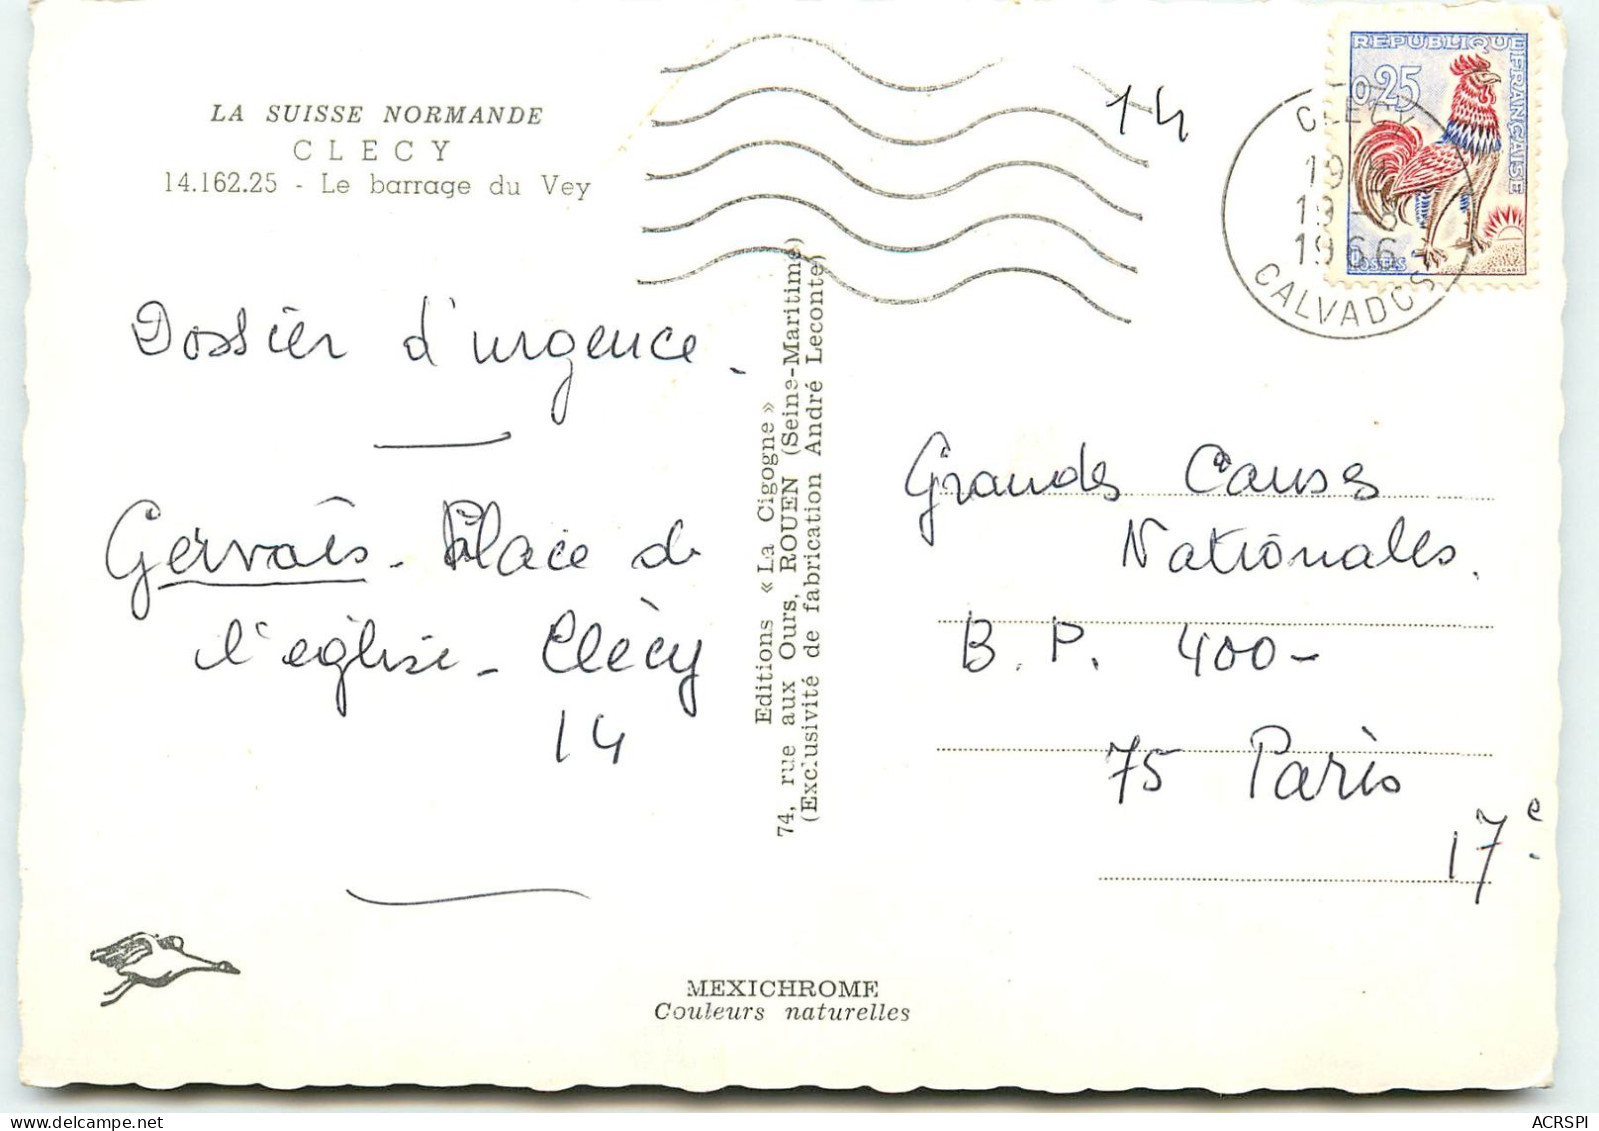 LA SUISSE NORMANDE
CLECY
14.162.25 - Le barrage du Vey
Dossier d'urgence.
Gervais - Place de
l'église - Clécy
14
Editions « La Cigogne »
74, rue aux Ours, ROUEN (Seine-Maritime)
(Exclusivité de fabrication André Leconte)
MEXICHROME
Couleurs naturelles
14
REPUBLIQUE FRANÇAISE
0,25
POSTES
CLECY
19 H
19 -8
1966
CALVADOS
Grandes Causes
Nationales.
B.P. 400-
75 Paris
17e.
ACRSPI